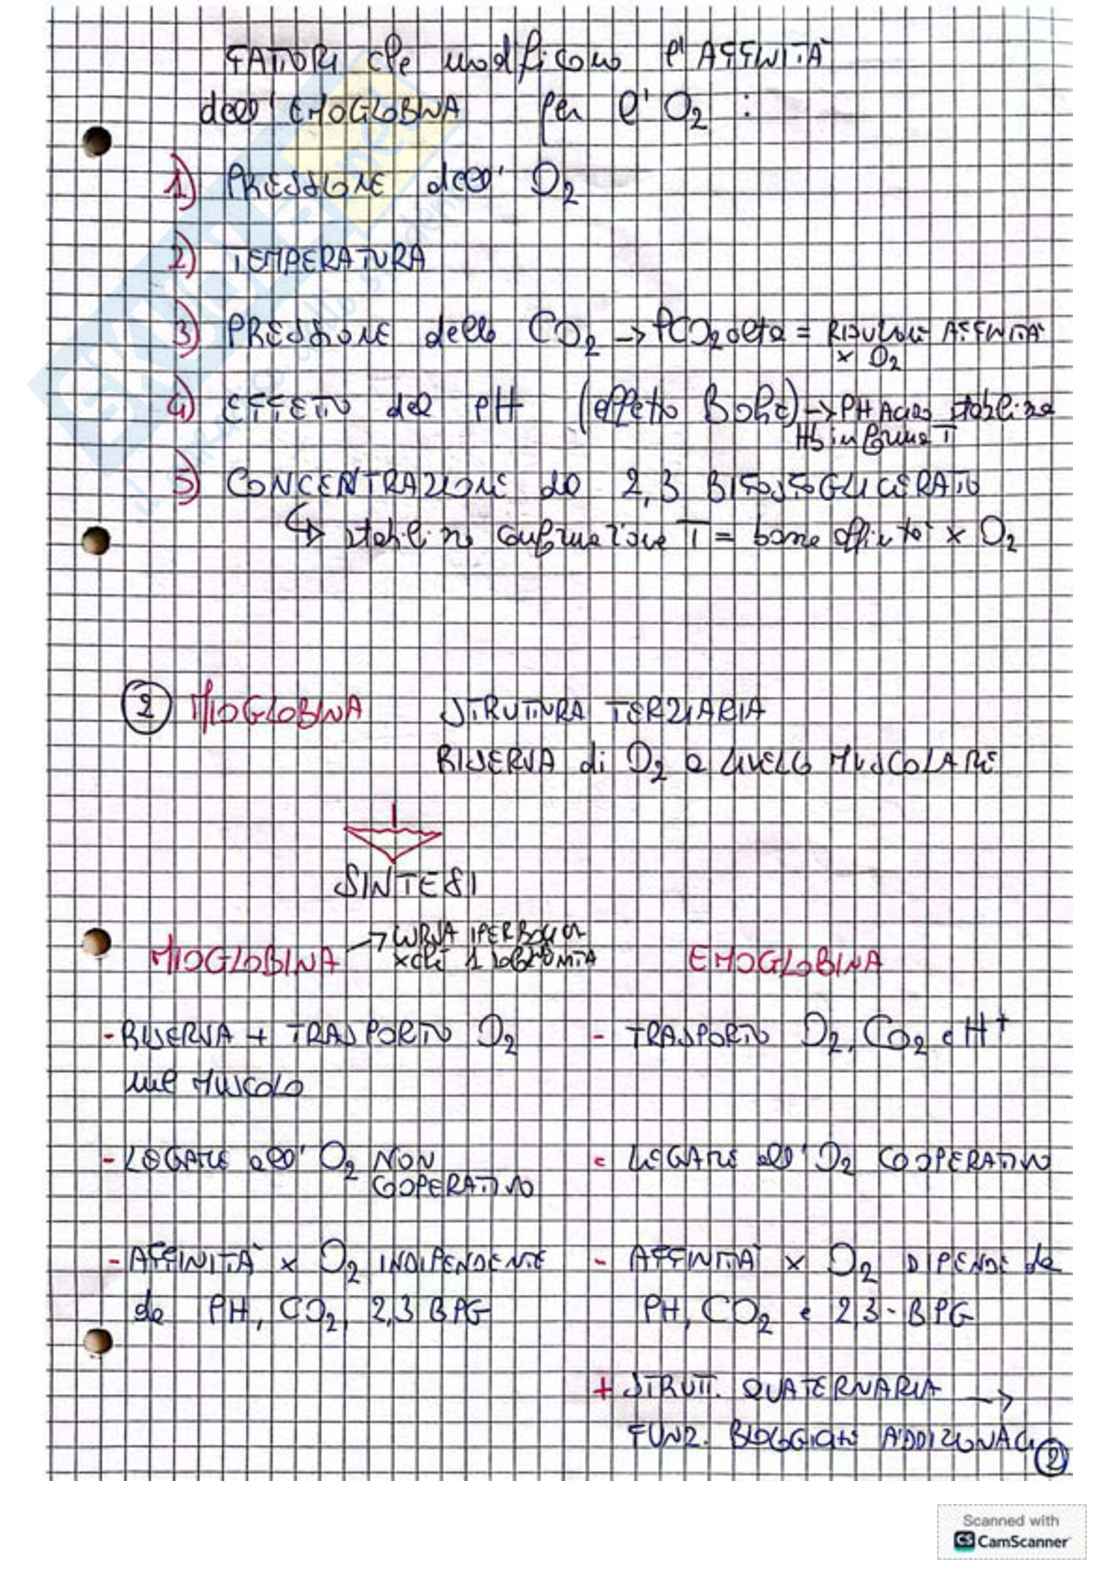 FATTORI che modificano l'AFFINITÀ
dell'EMOGLOBINA per l'O2 :
1) PRESSIONE dell'O2
2) TEMPERATURA
3) PRESSIONE della CO2 → PCO2 alta = RIDUZIONE AFFINITÀ
x O2
4) EFFETTO del pH (effetto Bohr) → PH Acido stabilizza
Hb in forma T
5) CONCENTRAZIONE del 2,3 BISFOSFOGLICERATO
↳ stabilizza conformazione T = bassa affinità x O2
2 MIOGLOBINA STRUTTURA TERZIARIA
RISERVA di O2 a LIVELLO MUSCOLARE
SINTESI
MIOGLOBINA → CURVA IPERBOLICA
xchè 1 SUBUNITÀ
EMOGLOBINA
- RISERVA + TRASPORTO O2
nel MUSCOLO
- TRASPORTO O2, CO2 e H+
- LEGAME all'O2 NON
COOPERATIVO
- LEGAME all'O2 COOPERATIVO
- AFFINITÀ x O2 INDIPENDENTE
da PH, CO2, 2,3 BPG
- AFFINITÀ x O2 DIPENDE da
PH, CO2 e 2,3-BPG
+ STRUTT. QUATERNARIA →
FUNZ. BIOLOGICHE ADDIZIONALI
2
Scanned with
CS CamScanner